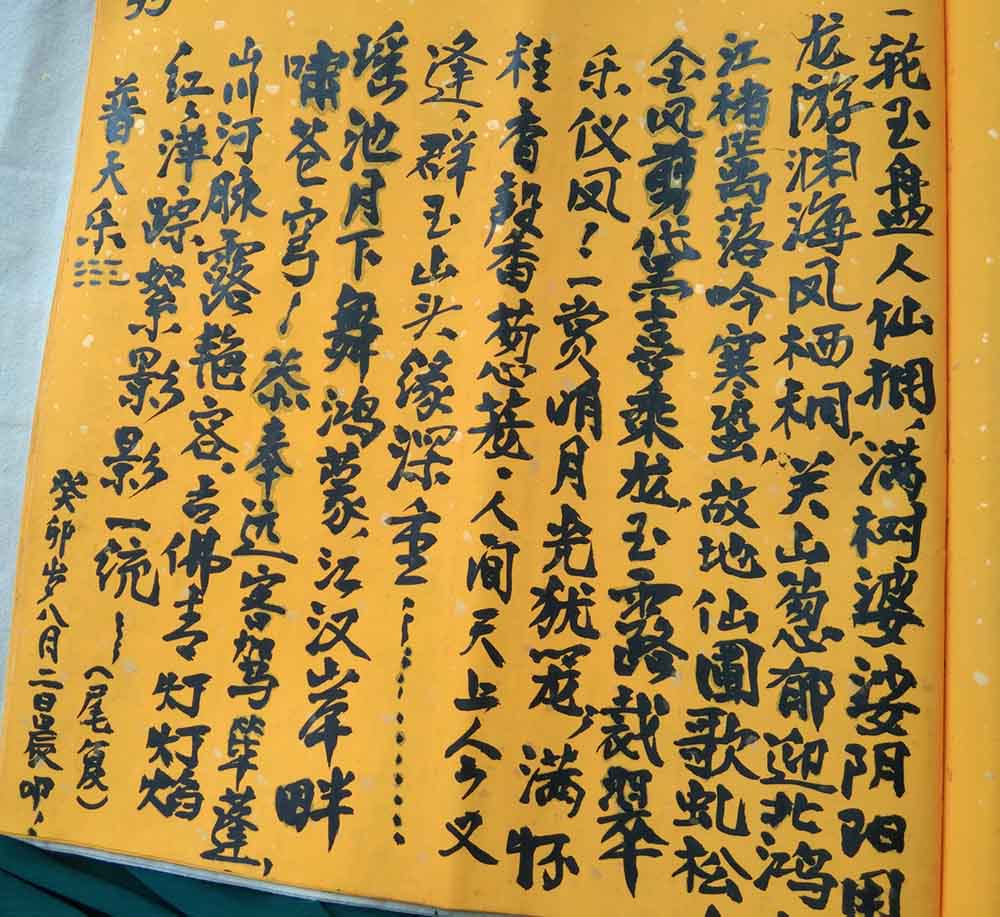 一轮玉盘人仙拥，满树婆娑阴阳
龙游渊海凤栖桐，关山葱郁迎北鸿
江楮落吟寒蛩，故地仙圃歌虬松
金风剪黛喜乘龙，玉露裁翠
乐仪凤！一赏明月光犹冠，满怀
桂香馨香菊苍、人间天上人人又
逢、群玉山头缘深重……
瑶池月下舞鸿蒙、江汉岸畔
啸苍穹！恭奉远客驾毕蓬，
山川河脉露艳容、古佛去灯灯焰
红、泽踪絮影影一统~
普天乐☷
（尾复）
癸卯岁八月二日晨